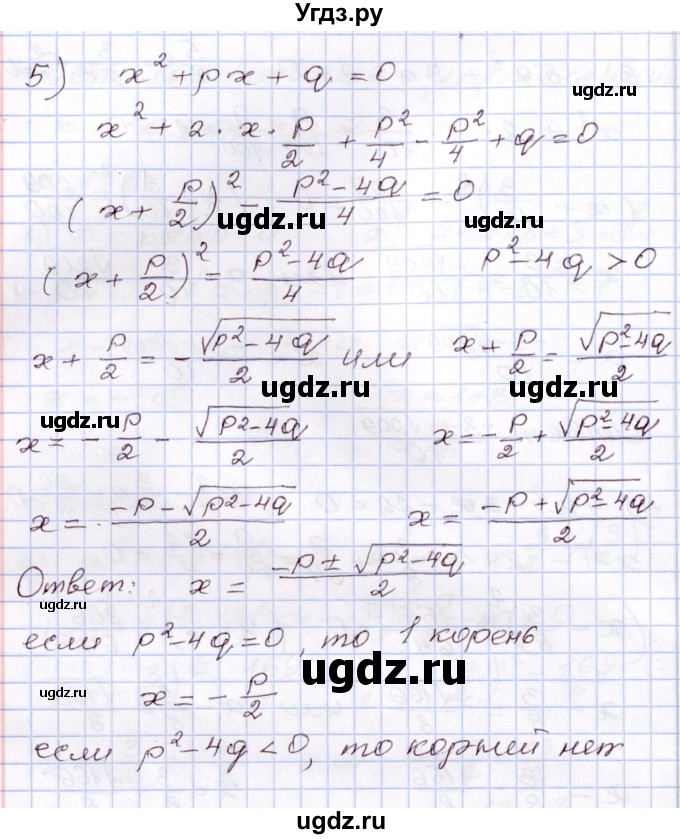 Угдз.ру
5) x² + px + q = 0
ugdz.ru
x² + 2 · x · p/2 + p²/4 - p²/4 + q = 0
(x + p/2)² - (p² - 4q)/4 = 0
ugdz.ru ugdz.ru
(x + p/2)² = (p² - 4q)/4 p² - 4q > 0
x + p/2 = - √(p² - 4q)/2 или x + p/2 = √(p² - 4q)/2
ugdz.ru ugdz.ru
x = - p/2 - √(p2 - 4q)/2 x = - p/2 + √(p² - 4q)/2
ugdz.ru
x = (-p - √(p² - 4q))/2 x = (-p + √(p² - 4q))/2
ugdz.ru
Ответ: x = (-p ± √(p² - 4q))/2
ugdz.ru
если p² - 4q = 0, то 1 корень
ugdz.ru
x = - p/2
ugdz.ru
если p² - 4q < 0, то корней нет
ugdz.ru
ugdz.ru